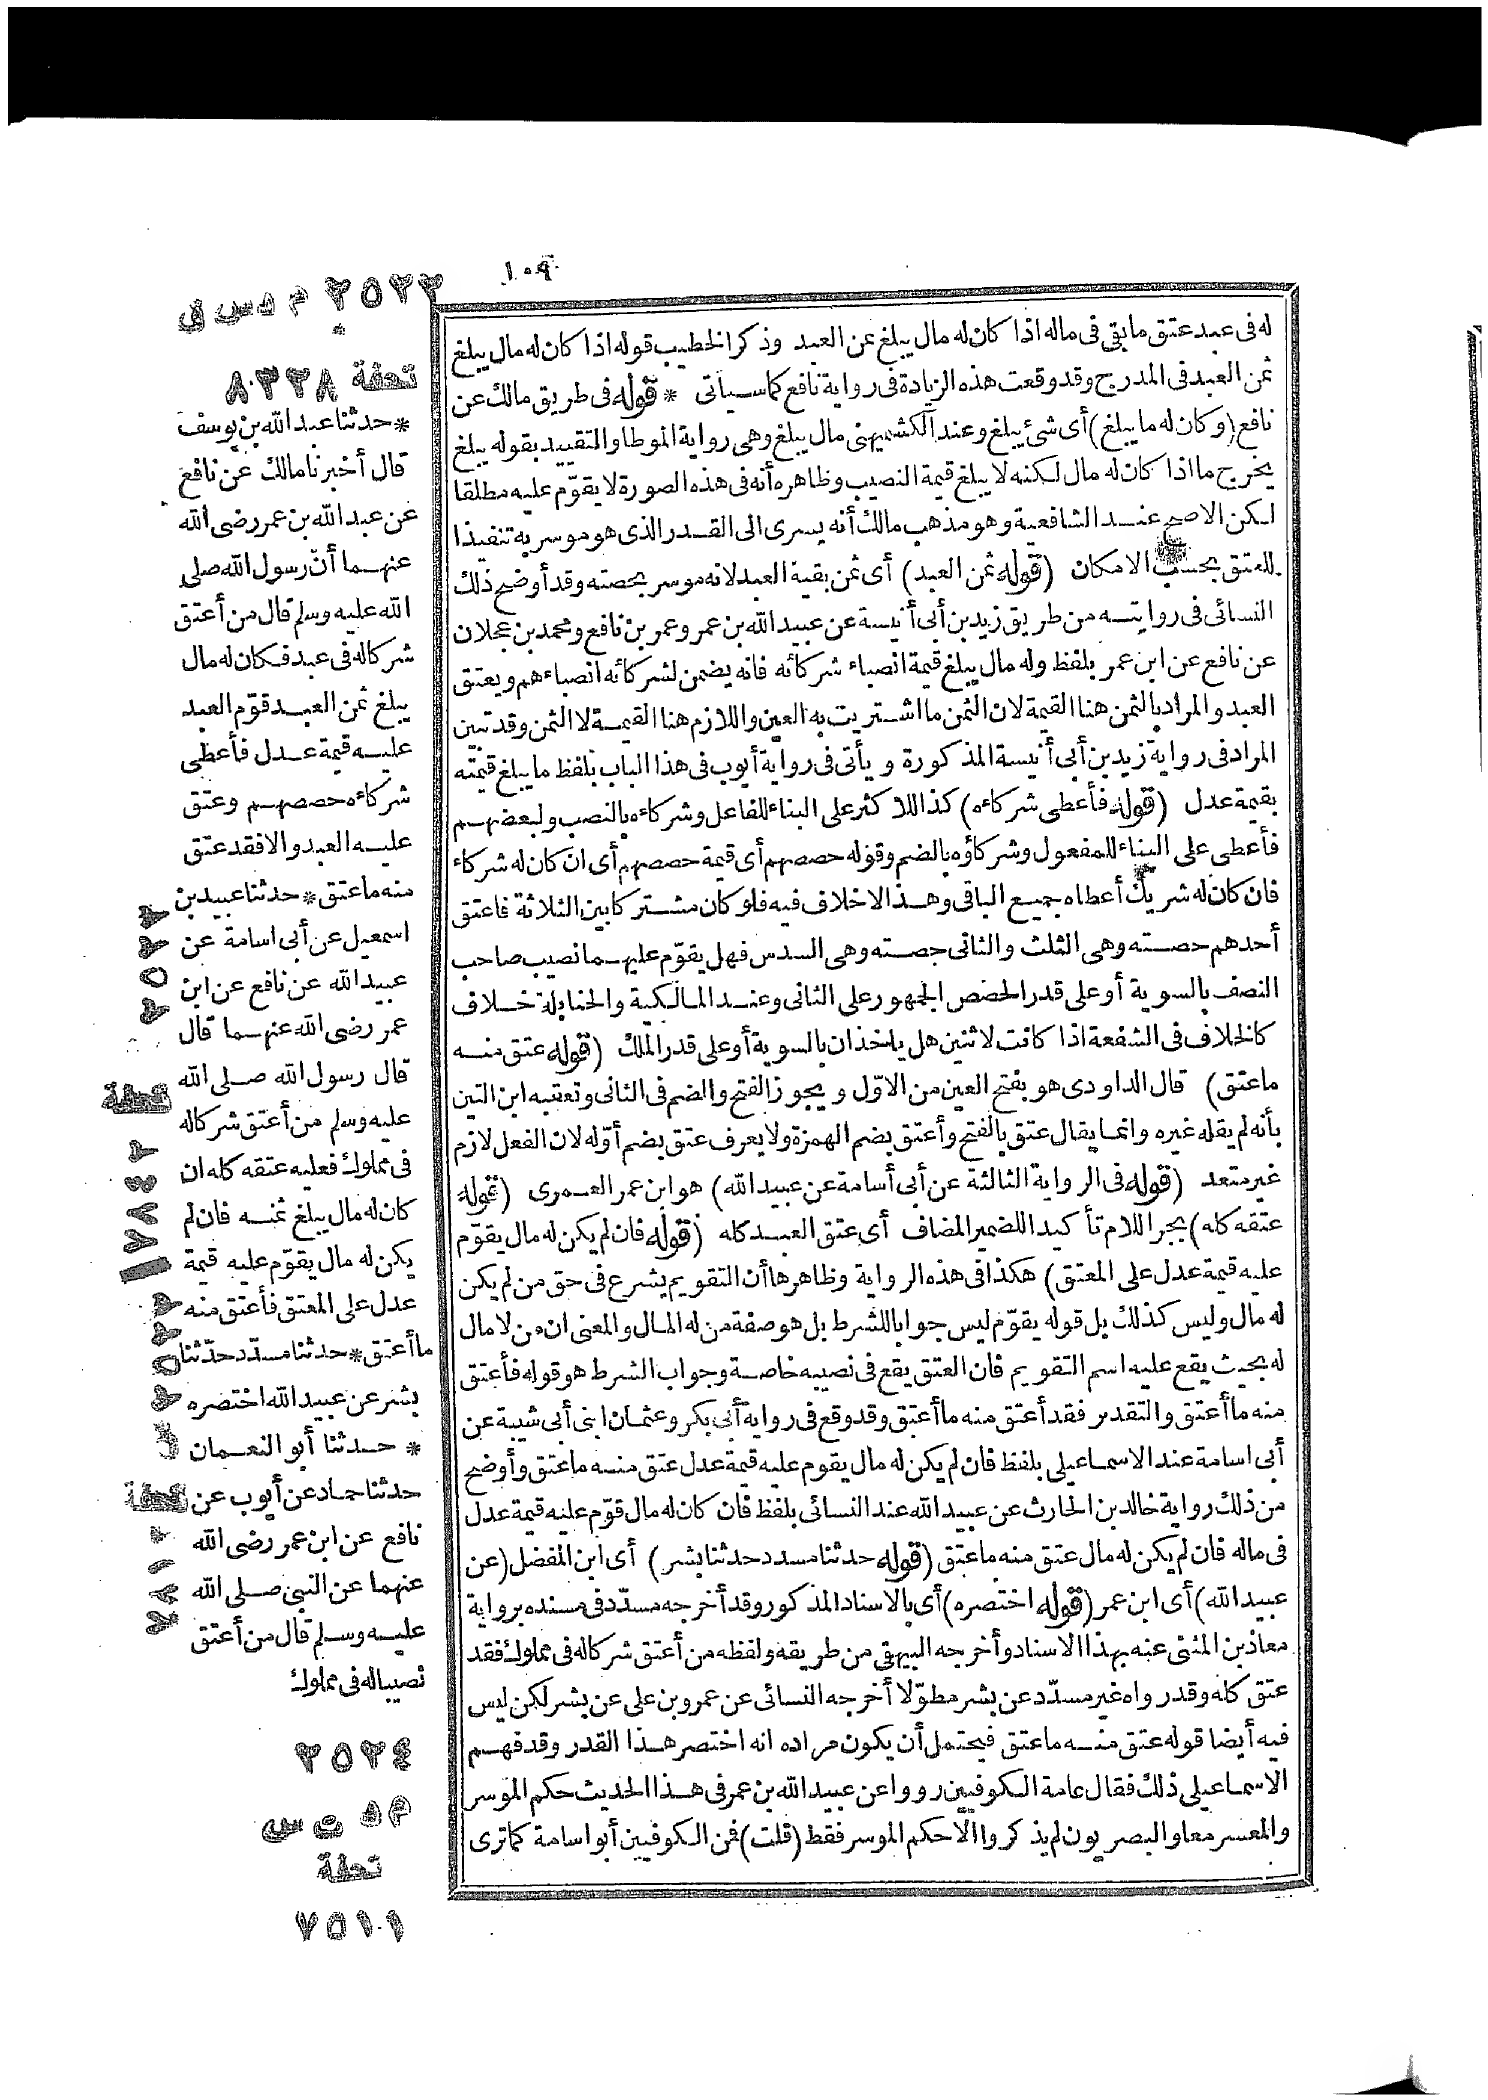 ١٠٩
له فى عبد عتق ما بقى فى ماله اذا كان له مال يبلغ ثمن العبد وذكر الخطيب قوله اذا كان له مال يبلغ
ثمن العبد فى المدرج وقد وقعت هذه الزيادة فى رواية نافع كما سيأتى * قوله فى طريق مالك عن
نافع (وكان له ما يبلغ) أى شئ يبلغ وعند الكشميهنى مال يبلغ وهى رواية الموطا والتقييد بقوله يبلغ
يخرج ما اذا كان له مال لكنه لا يبلغ قيمة النصيب وظاهره أنه فى هذه الصورة لا يقوّم عليه مطلقا
لكن الاصح عند الشافعية وهو مذهب مالك أنه يسرى الى القدر الذى هو موسر به تنفيذا
للعتق بحسب الامكان (قوله ثمن العبد) أى ثمن بقية العبد لانه موسر بحصته وقد أوضح ذلك
النسائى فى روايته من طريق زيد بن أبى أنيسة عن عبيد الله بن عمر وعمر بن نافع ومحمد بن عجلان
عن نافع عن ابن عمر بلفظ وله مال يبلغ قيمة انصباء شركائه فانه يضمن لشركائه انصباءهم ويعتق
العبد والمراد بالثمن هنا القيمة لان الثمن ما اشتريت به العين واللازم هنا القيمة لا الثمن وقد تبين
المراد فى رواية زيد بن أبى أنيسة المذكورة ويأتى فى رواية أيوب فى هذا الباب بلفظ ما يبلغ قيمته
بقيمة عدل (قوله فأعطى شركاءه) كذا للاكثر على البناء للفاعل وشركاءه بالنصب ولبعضهم
فأعطى على البناء للمفعول وشركاؤه بالضم وقوله حصصهم أى قيمة حصصهم أى ان كان له شركاء
فان كان له شريك أعطاه جميع الباقى وهذا لا خلاف فيه فلو كان مشتركا بين الثلاثة فاعتق
أحدهم حصته وهى الثلث والثانى حصته وهى السدس فهل يقوّم عليهما نصيب صاحب
النصف بالسوية أو على قدر الحصص الجمهور على الثانى وعند المالكية والحنابلة خلاف
كالخلاف فى الشفعة اذا كانت لاثنين هل يأخذان بالسوية أو على قدر الملك (قوله عتق منه
ما عتق) قال الداودى هو بفتح العين من الاوّل ويجوز الفتح والضم فى الثانى وتعقبه ابن التين
بأنه لم يقله غيره وانما يقال عتق بالفتح وأعتق بضم الهمزة ولا يعرف عتق بضم أوّله لان الفعل لازم
غير متعد (قوله فى الرواية الثالثة عن أبى أسامة عن عبيد الله) هو ابن عمر العمرى (قوله
عتقه كله) بجر اللام تأكيدا للضمير المضاف أى عتق العبد كله (قوله فان لم يكن له مال يقوّم
عليه قيمة عدل على المعتق) هكذا فى هذه الرواية وظاهرها أن التقويم يشرع فى حق من لم يكن
له مال وليس كذلك بل قوله يقوّم ليس جوابا للشرط بل هو صفة من له المال والمعنى ان من لا مال
له بحيث يقع عليه اسم التقويم فان العتق يقع فى نصيبه خاصة وجواب الشرط هو قوله فأعتق
منه ما أعتق والتقدير فقد أعتق منه ما أعتق وقد وقع فى رواية أبى بكر وعثمان ابنى أبى شيبة عن
أبى اسامة عند الاسماعيلى بلفظ فان لم يكن له مال يقوم عليه قيمة عدل عتق منه ما عتق وأوضح
من ذلك رواية خالد بن الحارث عن عبيد الله عند النسائى بلفظ فان كان له مال قوّم عليه قيمة عدل
فى ماله فان لم يكن له مال عتق منه ما عتق (قوله حدثنا مسدد حدثنا بشر) أى ابن المفضل (عن
عبيد الله) أى ابن عمر (قوله اختصره) أى بالاسناد المذكور وقد أخرجه مسدّد فى مسنده برواية
معاذ بن المثنى عنه بهذا الاسناد وأخرجه البيهقى من طريقه ولفظه من أعتق شركا له فى مملوك فقد
عتق كله وقد رواه غير مسدّد عن بشر مطوّلا أخرجه النسائى عن عمرو بن على عن بشر لكن ليس
فيه أيضا قوله عتق منه ما عتق فيحتمل أن يكون مراده انه اختصر هذا القدر وقد فهم
الاسماعيلى ذلك فقال عامة الكوفيين رووا عن عبيد الله بن عمر فى هذا الحديث حكم الموسر
والمعسر معا والبصريون لم يذكروا الا حكم الموسر فقط (قلت) فمن الكوفيين أبو اسامة كما ترى
٢٥٢٢ م د س ق
تحفة ٨٣٢٨
* حدثنا عبد الله بن يوسف
قال أخبرنا مالك عن نافع
عن عبد الله بن عمر رضى الله
عنهما أنّ رسول الله صلى
الله عليه وسلم قال من أعتق
شركا له فى عبد فكان له مال
يبلغ ثمن العبد قوّم العبد
عليه قيمة عدل فأعطى
شركاءه حصصهم وعتق
عليه العبد والا فقد عتق
منه ما عتق * حدثنا عبيد بن
اسمعيل عن أبى اسامة عن
عبيد الله عن نافع عن ابن
عمر رضى الله عنهما قال
قال رسول الله صلى الله
عليه وسلم من أعتق شركا له
فى مملوك فعليه عتقه كله ان
كان له مال يبلغ ثمنه فان لم
يكن له مال يقوّم عليه قيمة
عدل على المعتق فأعتق منه
ما أعتق * حدثنا مسدّد حدّثنا
بشر عن عبيد الله اختصره
* حدثنا أبو النعمان
حدثنا حماد عن أيوب عن
نافع عن ابن عمر رضى الله
عنهما عن النبى صلى الله
عليه وسلم قال من أعتق
نصيبا له فى مملوك
٢٥٢٤
م د ت س
تحفة
٧٥١١